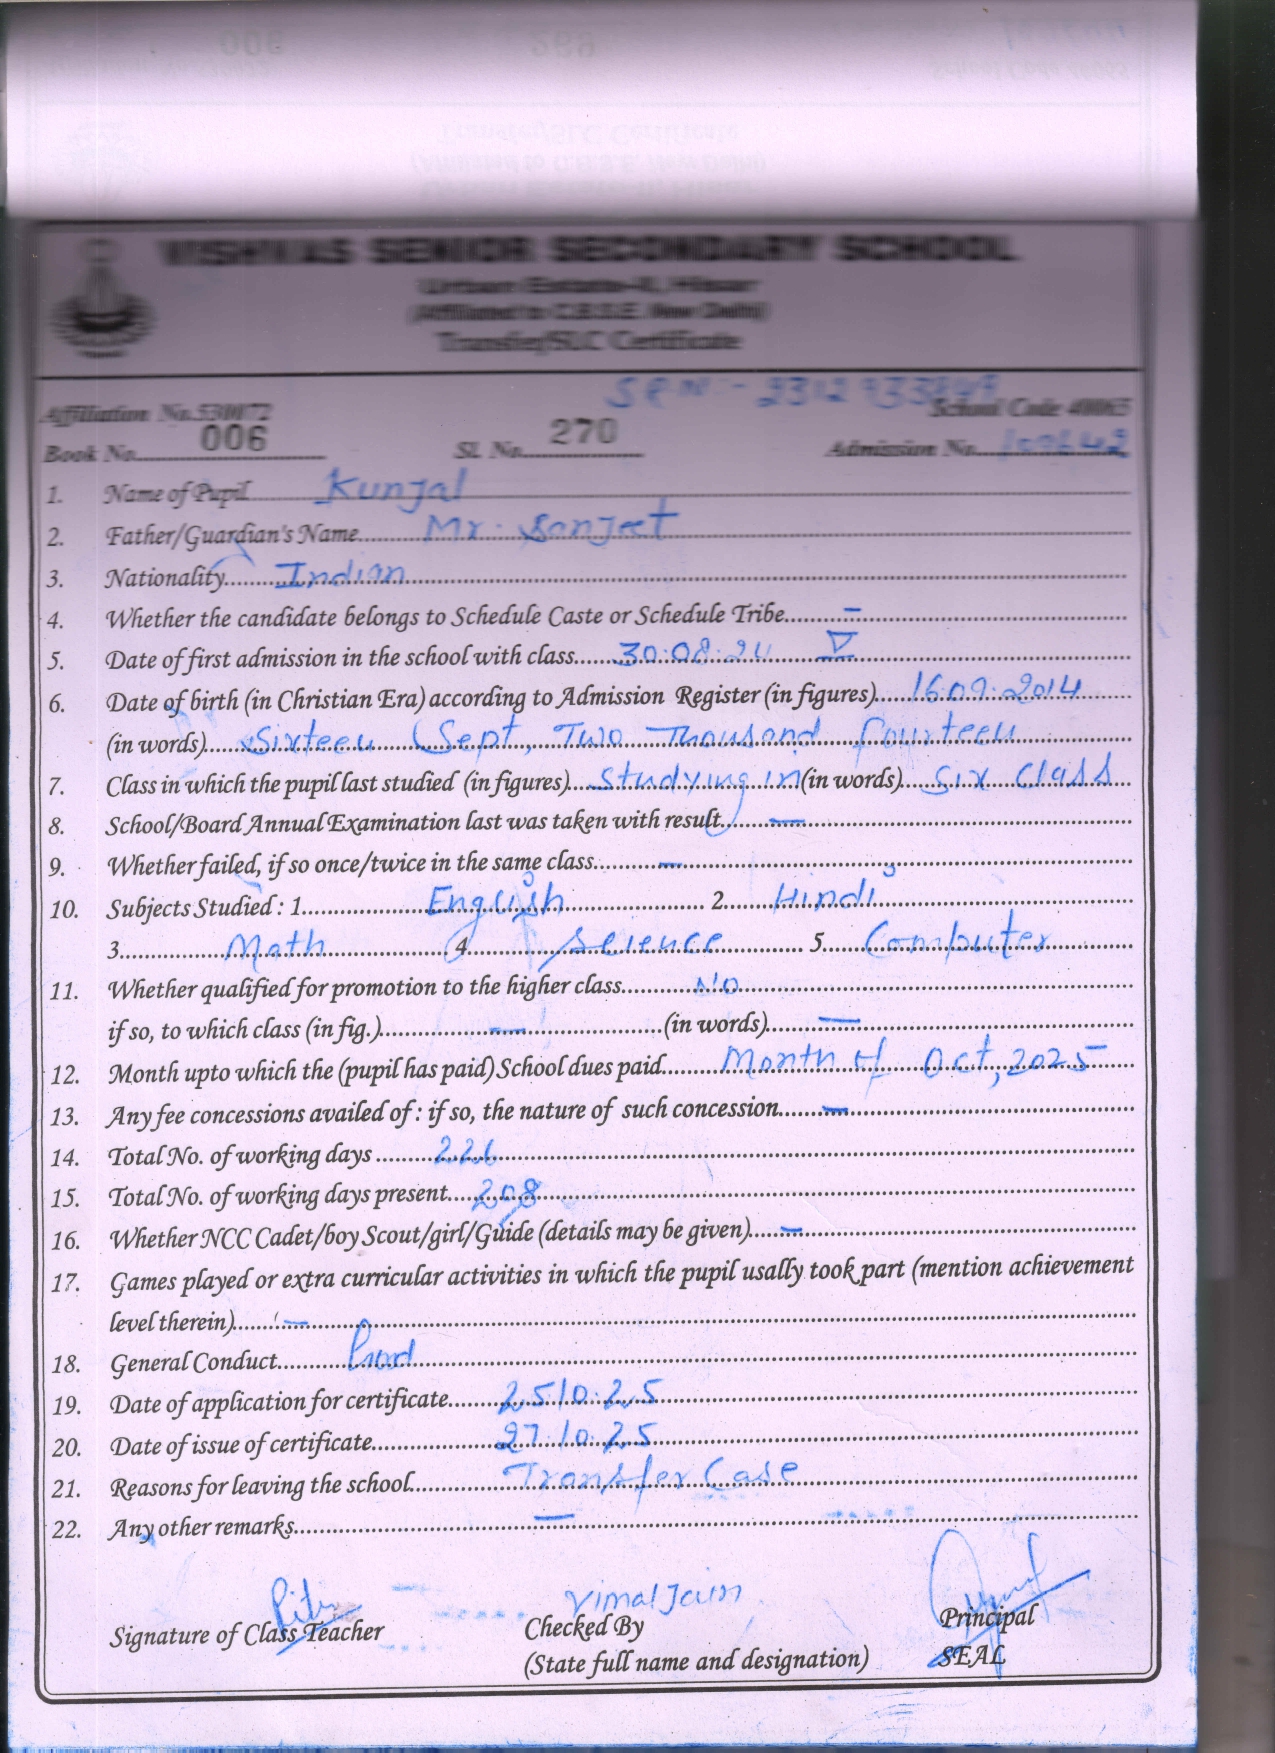 VISHWAS SENIOR SECONDARY SCHOOL
Urban Estate-II, Hisar
(Affiliated to C.B.S.E. New Delhi)
Transfer/SLC Certificate
SRN :- 2312933849
Affiliation No. 530072 School Code 40065
Book No. 006 SL No. 270 Admission No.
1. Name of Pupil Kunjal
2. Father/Guardian's Name Mr. Sanjeet
3. Nationality Indian
4. Whether the candidate belongs to Schedule Caste or Schedule Tribe –
5. Date of first admission in the school with class 30.08.24 V
6. Date of birth (in Christian Era) according to Admission Register (in figures) 16.09.2014
(in words) Sixteen Sept, Two Thousand fourteen
7. Class in which the pupil last studied (in figures) Studying in (in words) Six Class
8. School/Board Annual Examination last was taken with result –
9. Whether failed, if so once/twice in the same class –
10. Subjects Studied : 1. English 2. Hindi
3. Math 4. Science 5. Computer
11. Whether qualified for promotion to the higher class No
if so, to which class (in fig.) – (in words) –
12. Month upto which the (pupil has paid) School dues paid Month of Oct, 2025
13. Any fee concessions availed of : if so, the nature of such concession –
14. Total No. of working days 226
15. Total No. of working days present 208
16. Whether NCC Cadet/boy Scout/girl/Guide (details may be given) –
17. Games played or extra curricular activities in which the pupil usally took part (mention achievement
level therein) –
18. General Conduct Good
19. Date of application for certificate 25.10.25
20. Date of issue of certificate 27.10.25
21. Reasons for leaving the school Transfer Case
22. Any other remarks –
Vimal Jain
Signature of Class Teacher Checked By Principal
(State full name and designation) SEAL